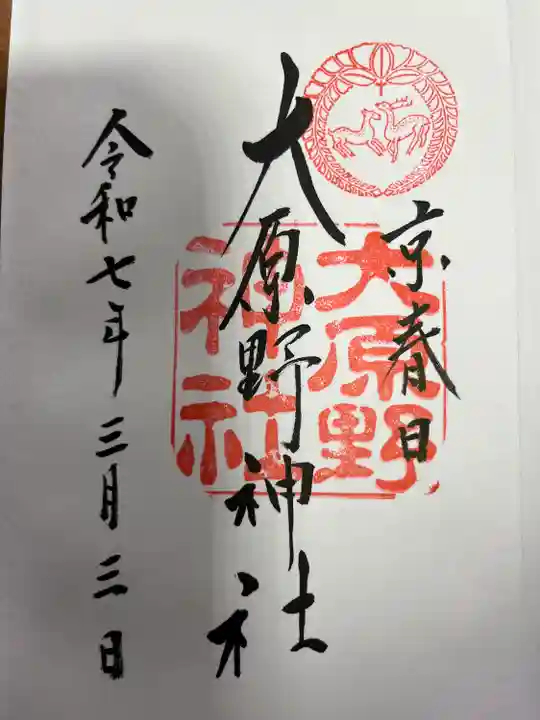 京春日
大原野神社
大原野
神社
令和七年三月三日